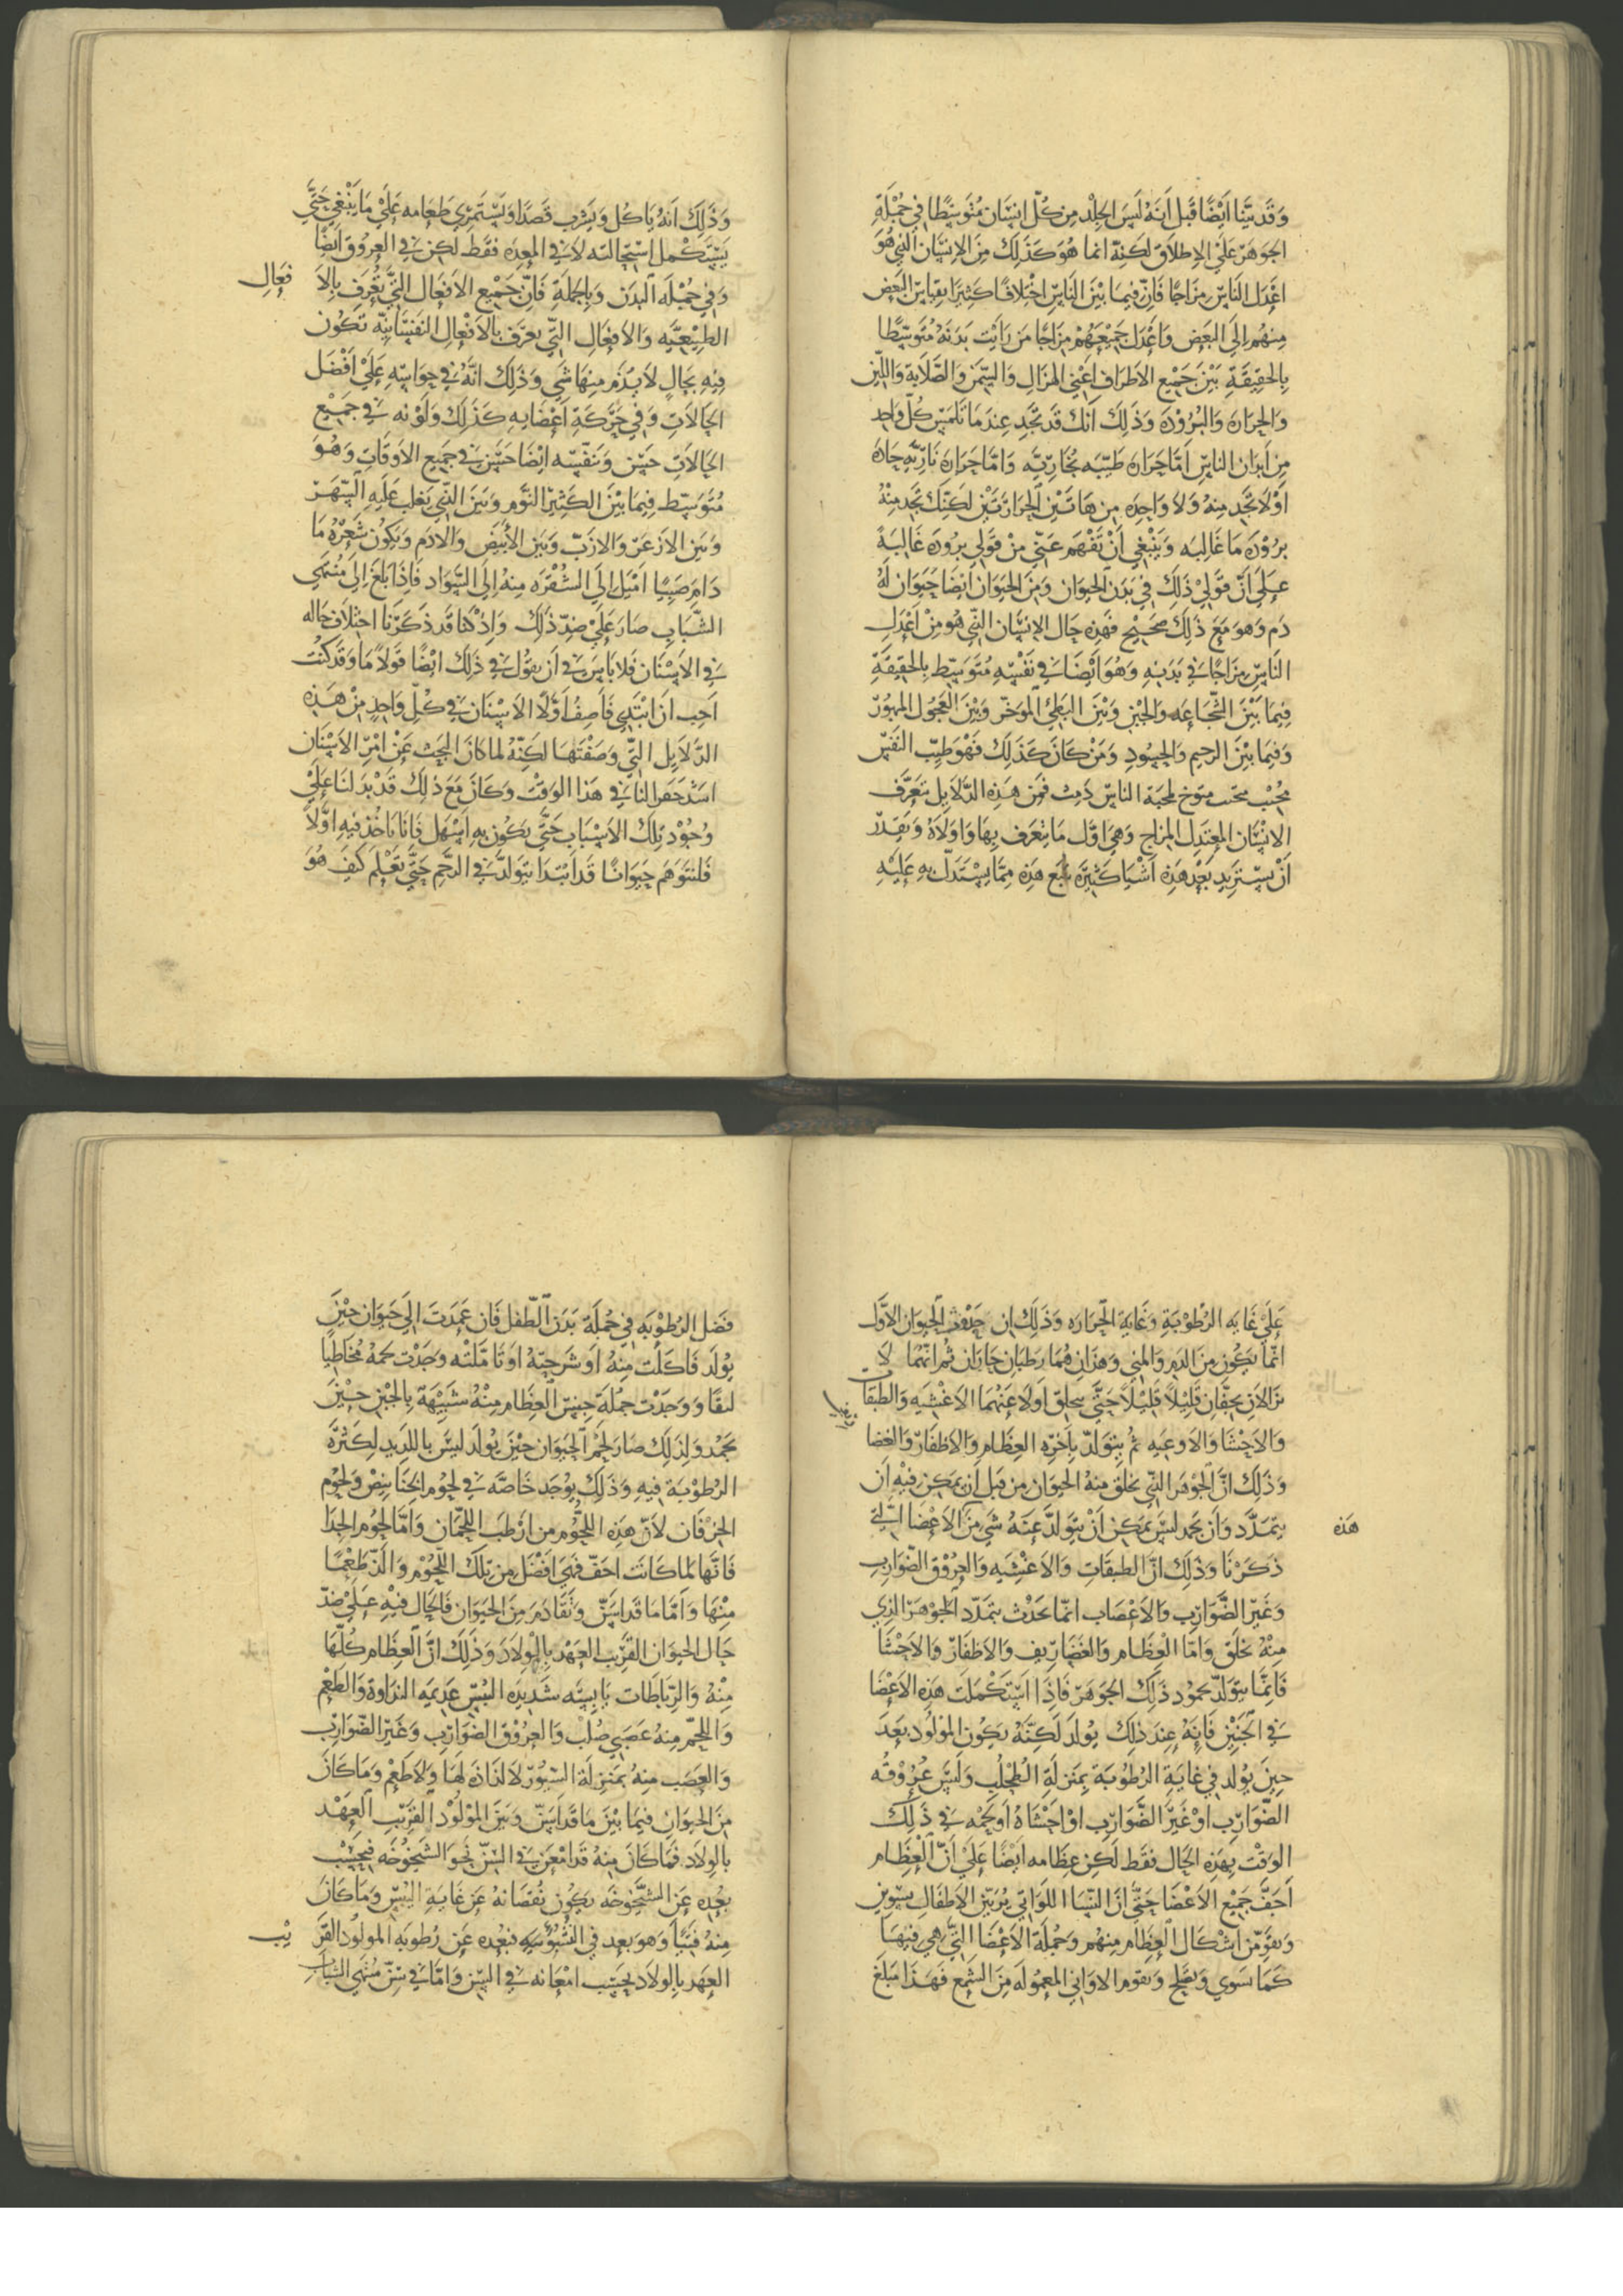 وَقَد بَيَّنَّا اَيْضًا قَبل اَنَهُ لَيسَ الجِلْد مِن كُلّ اِنسَان مُتَوسِطًا فِي جُمْلَةِ
الجَوهَرْ عَلَيْ الاِطلَاق لَكِنّهُ انما هُوَ كَذَلِكَ مِنَ الاِنسَان الذِي هُوَ
اعْدَل النَاسِ مِزَاجًا فَاِنّ فِيمَا بَيْنَ النَاسِ اخْتِلَافًا كَثِيرًا بقِيَاسِ البَعَضِ
مِنهُم اِلَي البَعَض وَاعْدَل جَمِيْعَهُمْ مِزَاجًا مَن رَاَيْتَ بَدَنَهُ مُتَوسِّطًا
بِالحَقِيْقَةِ بَيْنَ جَمِيْعِ الاَطرَافِ اَعْنِي الهزَالِ وَالسِّمَن وَالصَّلَابَة وَاللِّيْن
وَالحرَارَةِ وَالبُرُوْدَة وَذَلِكَ اَنكَ قَد تَجِد عِندَ مَا تَلمَسّ كُلّ وَاحِدٍ
مِن اَبدَان النَاسِ اَمَّا حَرَارَةً طَيّبَة بُخَارِيَّة وَامَّا حَرَارَة نَارِيَّة حَادَّة
اَوْ لَا تَجِد مِنهُ وَلَا وَاحِدَة مِن هَاتَيْنِ الحَرَارَتَيْنِ لَكِنَّكَ تَجِد مِنْهُ
برُوْدَة مَا غَالِبَه وَيَنْبَغِي اَنْ تَفْهَم عَنِّي مِنْ قَولِي برُودَة غَالِبَةً
عَلَي اَنّ قَوْلِيْ ذَلِكَ فِي بَدَن الحَيَوَان وَمِنَ الحَيَوَان اَيْضًا حَيَوَان لَهُ
دَم وَهوَ مَعَ ذَلِكَ صَحِيْح فَهَذِه حَال الاِنسَان الذِّي هُو مِنْ اَعْدَلِ
النَاسِ مِزَاجًا فِي بَدَنِهِ وَهُوَ اَيْضًا فِي نَفْسِه مُتَوسِّط بِالحَقِيقَةِ
فِيمَا بَيْنَ الشّجَاعَه وَالجُبْنِ وَبَيْنَ البَطيْ المُوَخّر وَبَيْنَ العَجُول المتهَوّر
وَفِيمَا بَيْنَ الرحِيم وَالحسُودِ وَمَنْ كَانَ كَذَلِكَ فَهْوَ طَيّب النَفس
مُحِبْ محَبّ متوخ لمحبَة الناسِ دَمِث فَمِن هَذِه الدّلَايل تعَرَّف
الانسَان المعتَدِل المزَاج وَهِيَ اوّل مَا يُعرَف بِهَا وَاوْلَاهُ وَيَقدر
اَنْ يَستَزيد بَعْد هَذِه اَشْيَا كثِيرَة تَتْبَع هَذِه مِمّا يسْتَدَلّ بهِ عَليْهِ
وَذَلِكَ اَنهُ يَاكُل وَيَشرَب قَصدًا وَيَسْتَمرِي طَعَامه عَلَيْ مَا يَنْبَغِي حَتَّي
يَسْتَكْمل اسْتِحَالته لَا فِي المِعدَة فقَط لكِن فِي العرُوق اَيضًا
وَفِي جُمْلَه البَدَن وَبِالجُملَةِ فَاِنّ جَمِيْع الاَفعَال التِّي تُعْرَف بِالاَ فعَالِ
الطبِيْعيَّه وَالاَفعَالِ التِّي تعرَف بِالاَفْعالِ النَفسَانِيّه تَكُون
فِيهِ بحَالٍ لَا يُذَم مِنهَا شَي وَذَلِكَ انَّهُ فِي حَواسّهِ عَلَيْ اَفضَل
الحَالاَتِ وَفِي حَرَكَةِ اَعْضَايِهِ كَذَلِكَ وَلَوْنه فِي جَمِيْع
الحَالاَتِ حَسَن وَتنَفّسه ايْضًا حَسَن فِي جَمِيع الاَوقَاتِ وَهُوَ
مُتَوَسّط فِيمَا بَيْنَ الكَثِيْرِ النَّوْم وَبَينَ الذِّي يَغلب عَلَيهِ السَّهَر
وَبَين الاَزعَرّ وَالازَبّ وَبَينِ الاَبْيَض وَالادَم وَيَكُون شَعَرُهُ مَا
دَامَ صَبِيًّا اَمْيَلَ اِلَي الشُقْرَه مِنهُ اِلَي السَّوَاد فَاِذَا بَلَغَ اِلَي مُنتَهَي
الشَّبَابِ صَارَ عَلَيْ ضِدّ ذَلِكَ وَاِذْ كُنَّا قَد ذَكَرْنَا اختِلَاف حَاله
فِي الاَسْنَان فَلَا بَاسَ فِي اَن يقوُل فِي ذَلِكَ ايْضًا قَولًا مَا وَقَد كُنت
اُحِب اَن ابْتَدِي فَاصِفُ اَوَّلًا الاَسْنَان فِي كُلّ وَاحِدٍ مِنْ هَذِه
الدَّلَايِل التِّي وَصَفْتَهَا لكِنّهُ لما كانَ البَحْث عَنْ امْرِ الاَسْنَان
اسْتَحقر النا فِي هَذا الوَقتْ وَكَانَ مَعَ ذَلِكَ قَدْ بَدَ لنَا عَلَيْ
وُجُوْد تِلكَ الاَسْبَابِ حَتَّي يَكُون بهِ اَسْهَل فَاِنَا نَاخُذ فِيهِ اوّلًا
فَلنَتَوَهَم حَيَوَانًا قَد ابتَدَا يَتَولَّدُ فِي الرَّحِمِ حَتَّي نَعْلَمَ كَيفَ هُوَ
عَلَيْ غَايَه الرُطُوْبَةِ وَغَايَةِ الحَرَارَه وَذَلِكَ اِن حُدُوْثُ الحَيوَان الاَوَّلَ
انَّمَا يَكُون مِنَ الدَم وَالمَنِي وَهذَانِ هُمَا رَطبَانِ حَارَان ثُمَ اِنَّهُمَا لَا
يزَالَانِ يَجِفَّانِ قَلِيْلًا قَلِيْلًا حَتَّي يتخلّق اولَا عَنْهُمَا الاَغْشيَه وَالطَبقَات
وَالاَحْشَا وَالاَوعيَه ثُمَّ يَتَوَلَّد بِاَخرّه العظَام وَالاَظفَار وَالغضَا
وَذَلِكَ انَّ الجَوْهَرَ الذِّي تخلّق مِنهُ الحَيوَان مِن قَبل اَن يمكِن فِيْهِ اَن
يتمَدَّد وَاَن يجمد لَيسَ يُمكِن اَنْ يَتَوَلَّد عَنهُ شَي مِنَ الاَعْضَا الَّتِي هَذِه
ذَكَرْنَا وَذَلِكَ انَّ الطَبقَاتِ وَالاَغْشِيَه وَالعُرُوْق الضَّوَارِبِ
وَغَيْر الضَّوَارِب وَالاَعْصَاب انمَّا تحدُث بتمدّد الجَوْهَر الذِي
مِنْهُ تخلّق وَامّا العِظَام وَالغَضَارِيف وَالاَظفَار وَالاَحْشَا
فَاِنَّمَا تتوَلّد بجمُود ذَلكَ الجَوهَر فَاِذَا اسْتَكْمَلَت هَذِه الاَعْضَا
فِي الجَنِيْنِ فَاِنهُ عِندَ ذَلِكَ يُولَد لَكِنَّهُ يَكُون المَوْلوُد بَعدَ
حِينَ يُولَد فِي غايَةِ الرطُوبَة بِمَنزلَةِ الطُحْلُبِ وَليَس عرُوْقُه
الضَّوَارِب اَوْ غَيْر الضَّوَارِب اوْ احْشَاهُ اَو لَحْمُه فِي ذَلِكَ
الوَقتْ بهَذِه الحَال فقَط لَكِن عِظَامه اَيضًا عَلَيْ اَنّ العِظَام
اَجَفُّ جَمِيْع الاَعْضَا حَتَّي اَنَّ النّسَا اللوَاتي يُرَبِّيْنَ الاَطفَالِ يسوين
وَيقوّمن اشْكَال العِظَام مِنهُم وَجُملَة الاَعْضَا التِّي هِي فِيْهَا
كَمَا يسَوي وَيصلح وَيقوم الاوَاني المعمُولَه مِنَ الشَمع فَهَذَا مَبلَغ
فَضل الرُطُوْبَه فِي جُملَةِ بَدَنِ الطِّفل فَاِن عَمَدتَ اِلَي حَيوَان حِيْنَ
يُولَد فَاكَلتَ مِنهُ اَو شَرحتَه اَو تَامّلتَه وَجَدْت لحَمهُ مُخَاطِيًا
لثقًا وَوَجَدْت جُملَةِ جِنسّ العِظَام مِنْهُ شَبِيْهَة بِالجُبْنِ حِيْنَ
يجمُد وَلِذَلِكَ صَارَ لحمُ الحَيوَان حِيْنَ يُولَد لَيسَ باللذيذ لِكَثرَة
الرُطُوْبَة فِيهِ وَذَلِكَ يُوْجَد خَاصَّة فِي لحوُم الخَنَا نِيْص وَلحوُم
الخِرْفَان لاَنّ هَذِه اللحُوْم مِن اَرْطَب اللحْمَان وَامَّا لحوُم الجدَا
فَاِنَّهَا لمَا كَانَت اجَفّ فَهِيَ اَفْضَل مِن تِلكَ اللّحُوْم وَالذّ طَعْمًا
مِنْهَا وَامَّا مَا قَد اسَنّ وَتَقَادَم مِنَ الحَيَوَان فَالحَال فِيْهِ عَلَي ضِدّ
حَال الحَيوَان القَرِيْب العَهْد بِالوِلَادَة وَذَلِكَ اَنَّ العِظَام كُلّهَا
مِنْهُ وَالرِّبَاطَات يَابِسَة شَدِيدَه اليُبسِ عَدِيمَه النداوة وَالطَعْم
وَاللَحم مِنهُ عَصَبي صُلبْ وَالعرُوْق الضَوَارِب وَغَيْر الضَّوَارِب
وَالعَصَب مِنهُ بمَنزلَة السّيُوْر لَا لَذاذَة لَهَا وَلَا طَعْم وَمَا كَانَ
مِنَ الحيَوَانِ فِيمَا بَيْنَ مَا قَد اسَنّ وَبَينَ المَوْلُوْد القَرِيْبِ العَهْد
بِالوِلَاد فَمَا كَانَ مِنهُ قَد امْعَن فِي السّنّ نحوَ الشَيخُوخَه فبِحَسْب
بعُده عَن الشَيْخوخَه يَكُون نُقصَانهُ عَن غَايَة اليُبْسِ وَمَا كَانَ
مِنهُ فَتِيًا وَهوَ بَعد فِي النُشُوْ فبُعده عَن رُطوبَه المولوُد القَرِ يْب
العَهد بِالوِلاد بحَسَب امْعَانه فِي السّن وَامَّا فِي سِنّ مُنتهَي الشَبَابِ